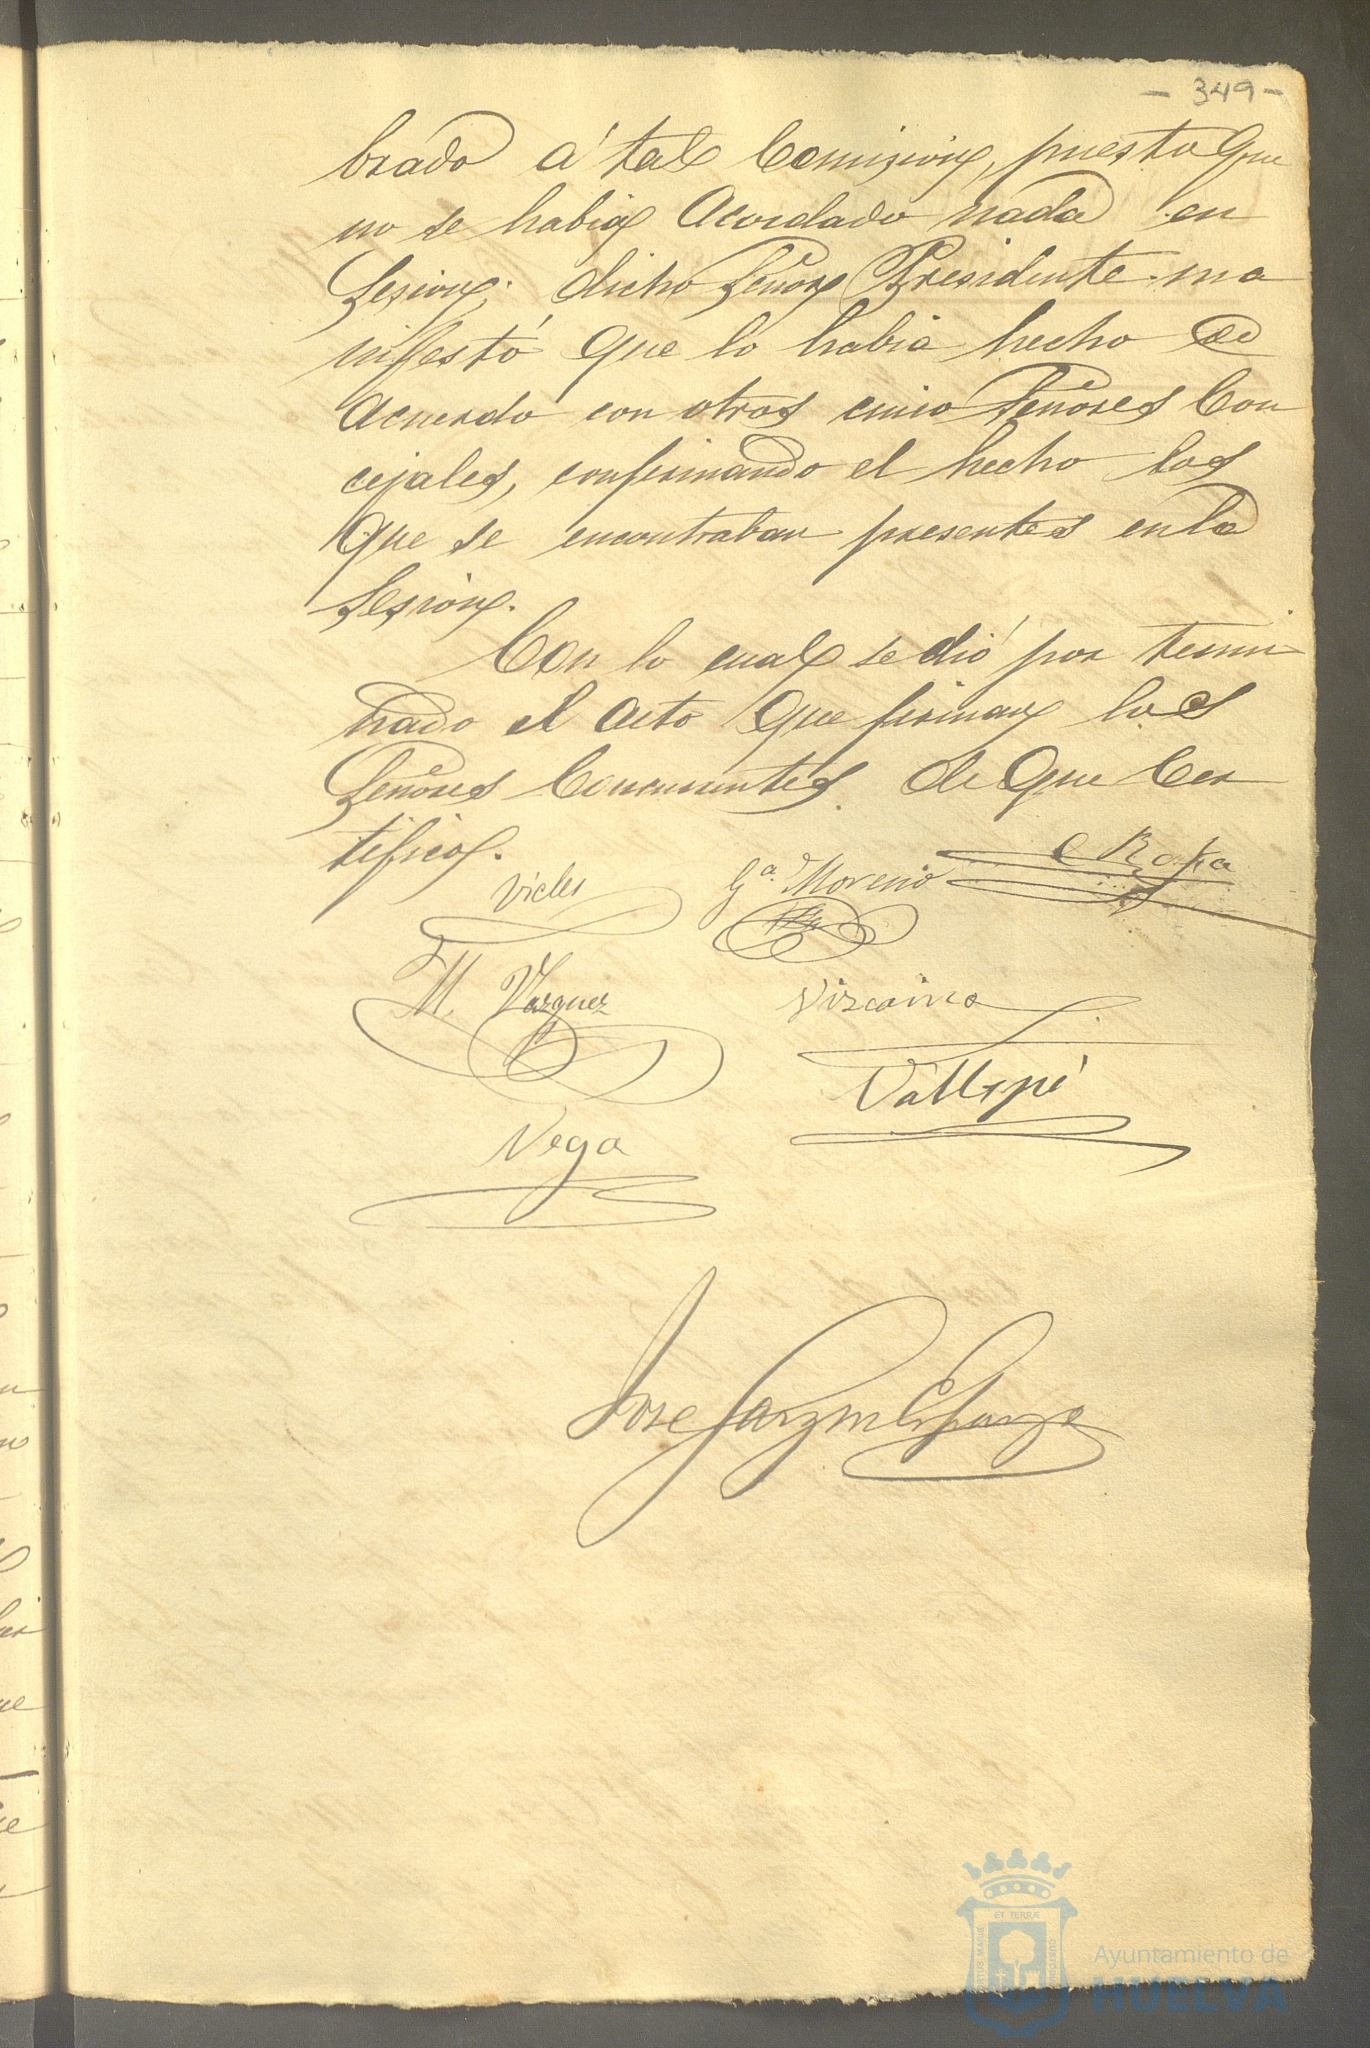 - 349 -
brado á tal Comision, puesto que
no se habia acordado nada en
Sesion; dicho Señor Presidente ma
nifestó que lo habia hecho de
acuerdo con otros cinco Señores Con
cejales, confirmando el hecho los
que se encontraban presentes en la
Sesion.
Con lo cual se dió por termi
nado el acto que firman los
Señores Concurrentes de que Cer
tifico.
G.ª Moreno
M. Vazquez
Vizcaino
Vallespé
Vega
Jose Garzon
Ayuntamiento de
HUELVA